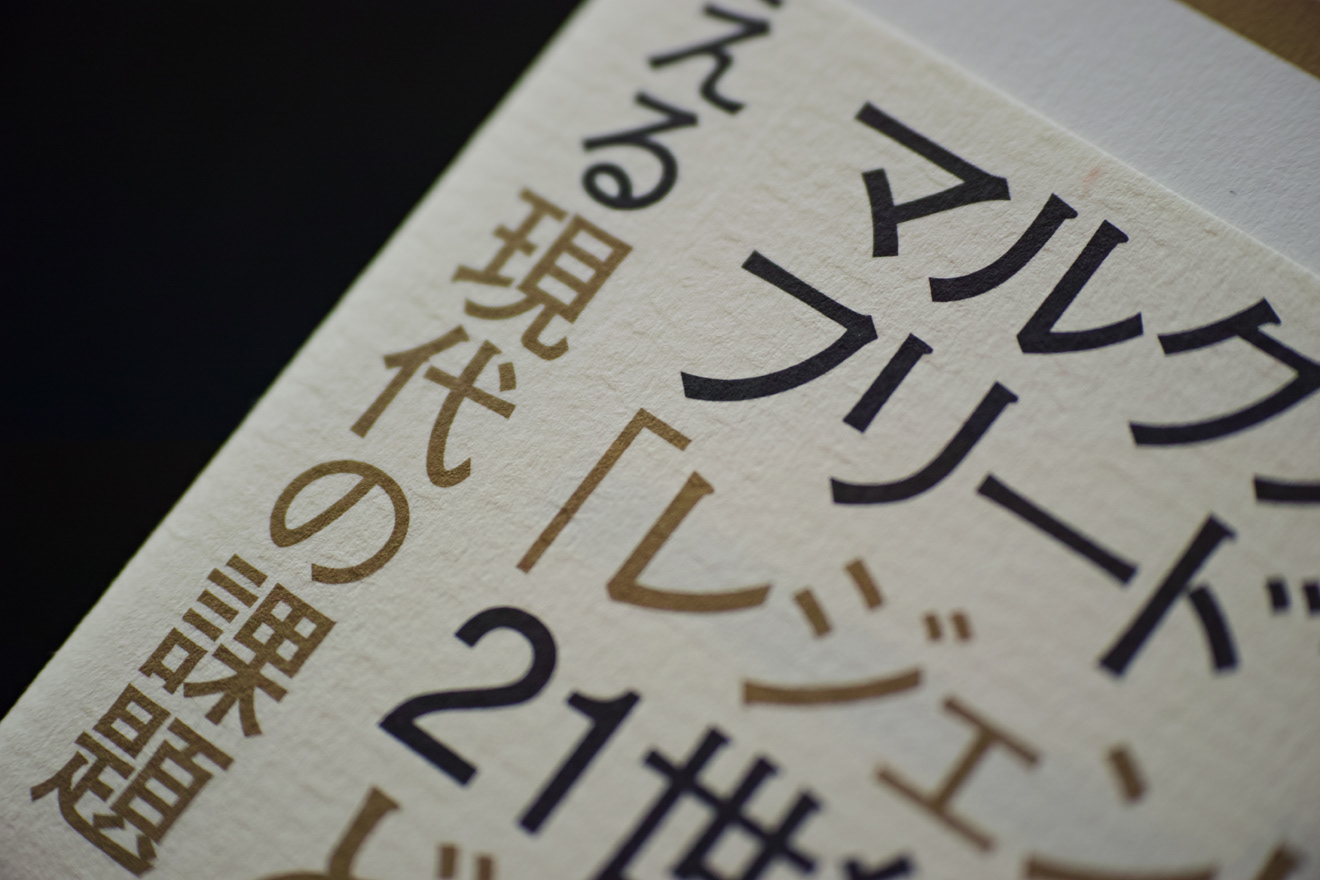 マルク
フリード
「レジェン
21世
える現代の課題